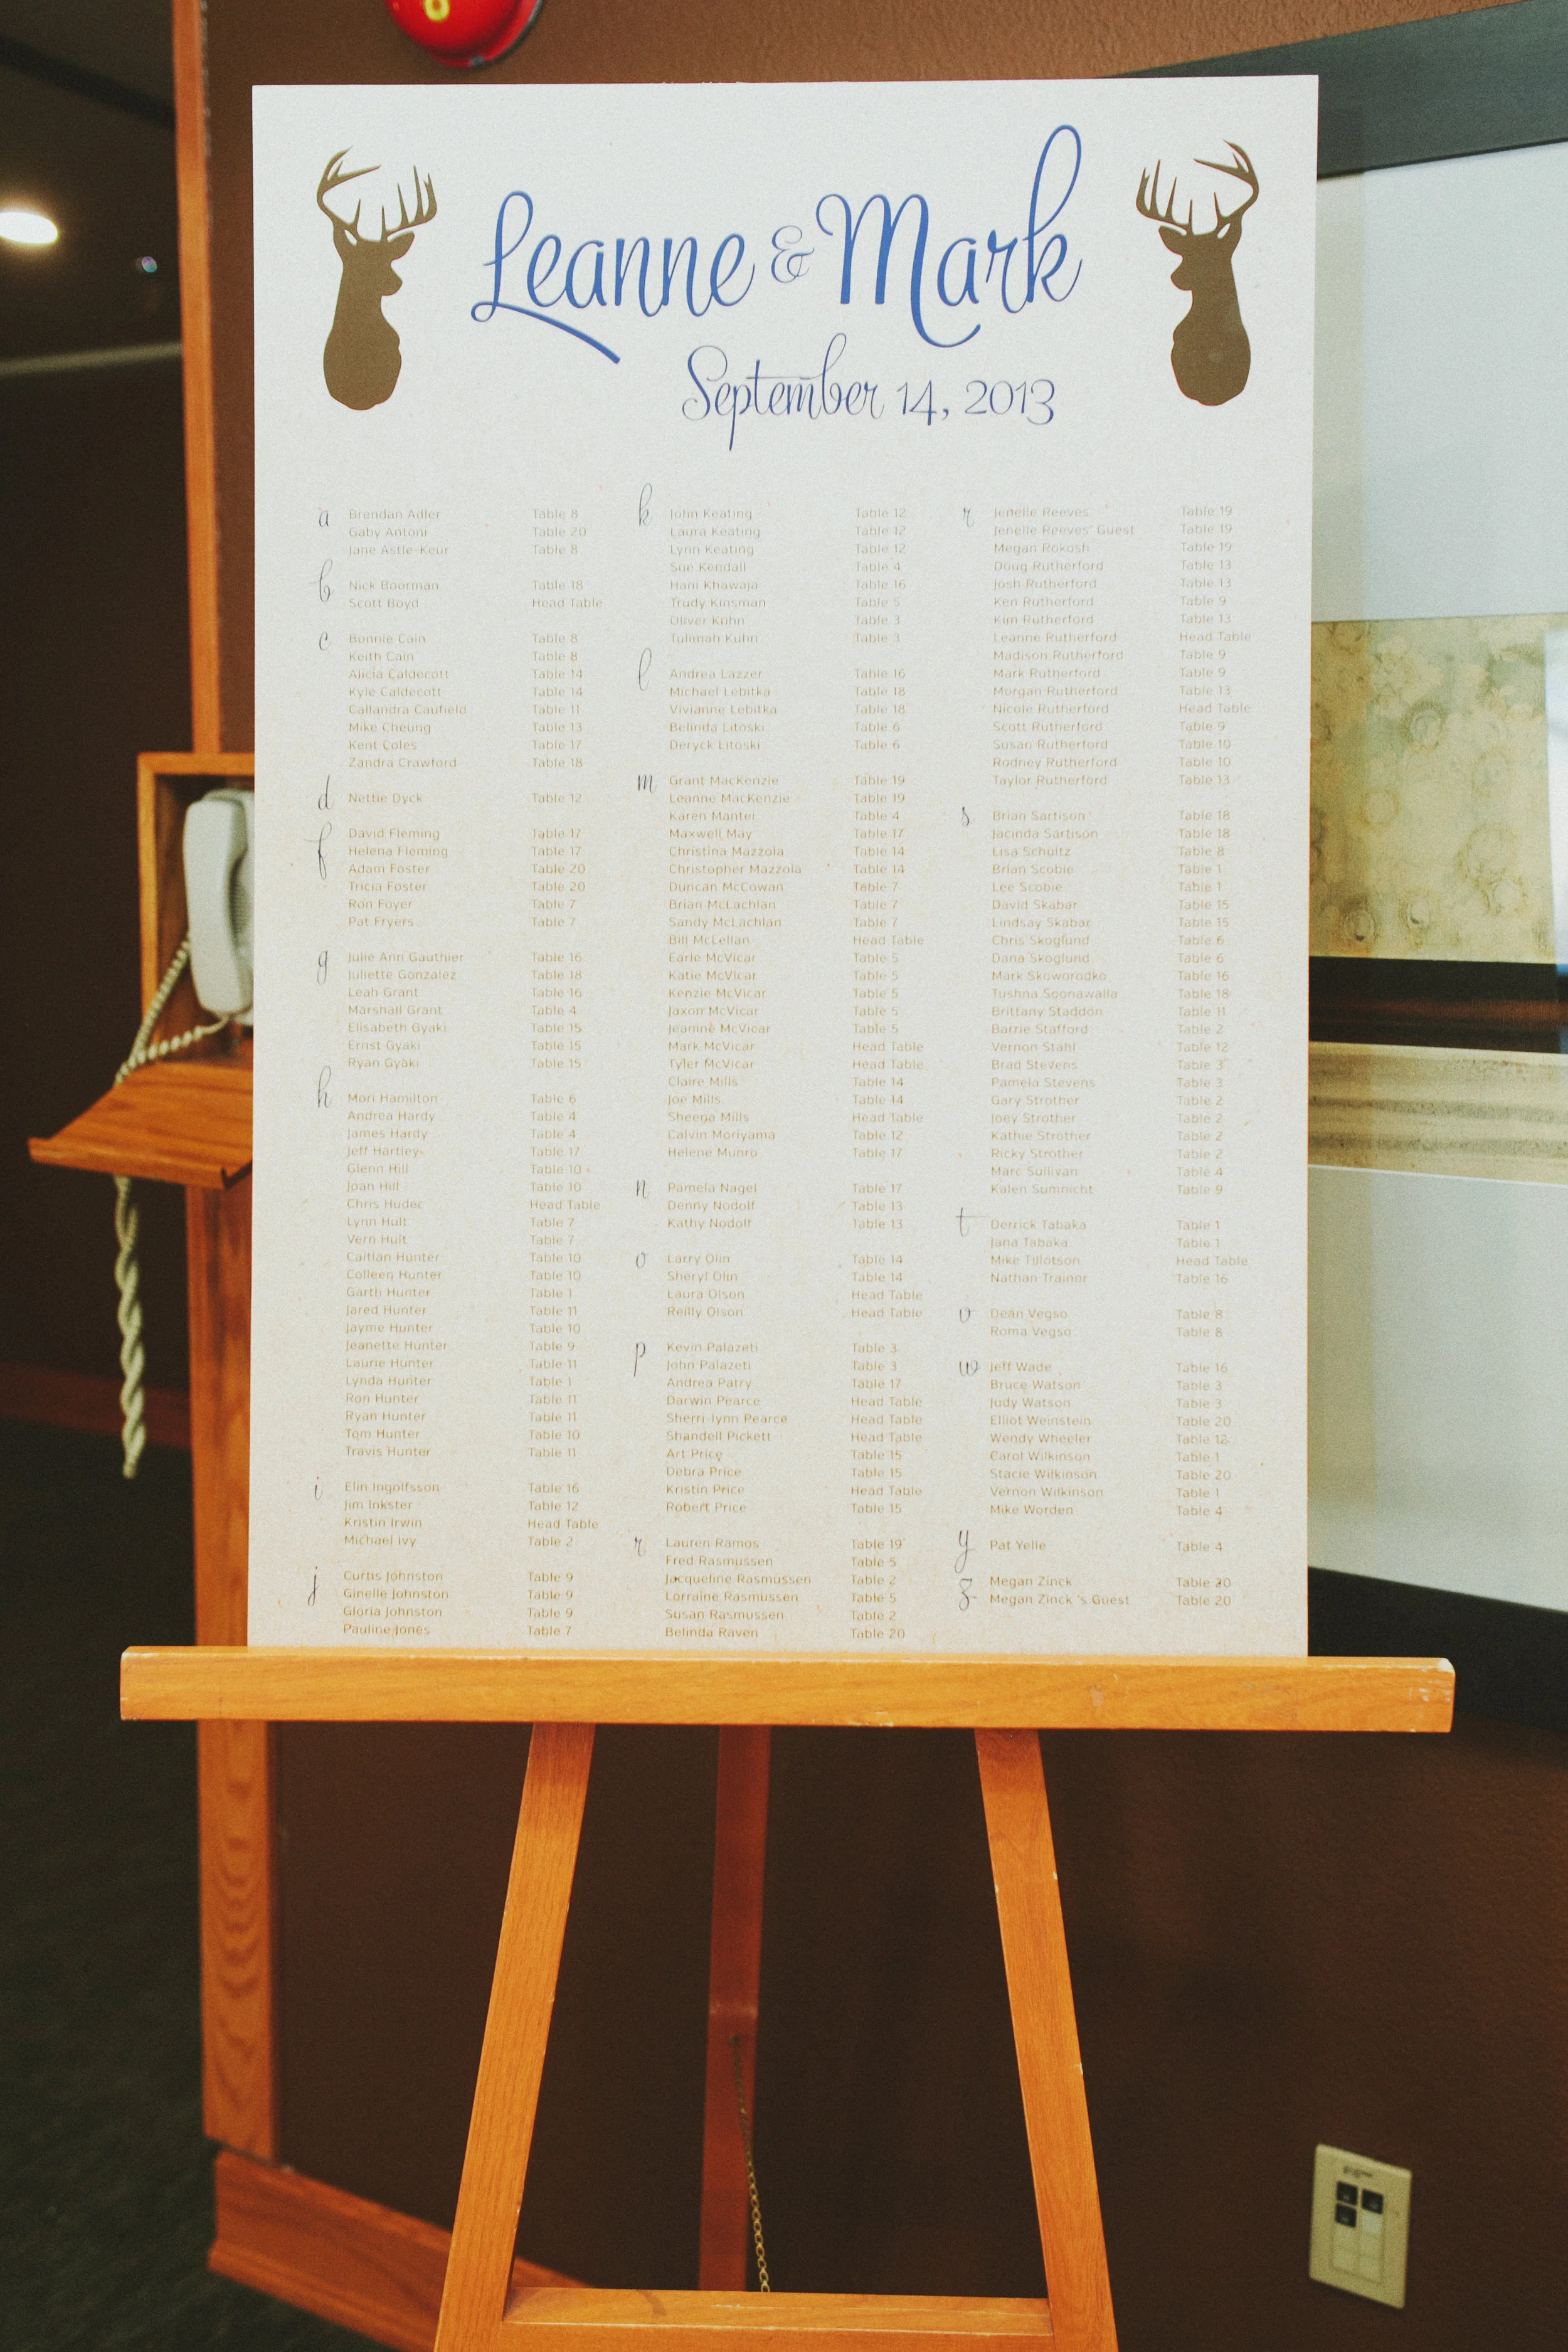 Leanne & Mark
September 14, 2013
a Brendan Adler Table 8
Gaby Antoni Table 20
Jane Astle-Keur Table 8
b Nick Boorman Table 18
Scott Boyd Head Table
c Bonnie Cain Table 8
Keith Cain Table 8
Alicia Caldecott Table 14
Kyle Caldecott Table 14
Callandra Caufield Table 11
Mike Cheung Table 13
Kent Coles Table 17
Zandra Crawford Table 18
d Nettie Dyck Table 12
f David Fleming Table 17
Helena Fleming Table 17
Adam Foster Table 20
Tricia Foster Table 20
Ron Foyer Table 7
Pat Fryers Table 7
g Julie Ann Gauthier Table 16
Juliette Gonzalez Table 18
Leah Grant Table 16
Marshall Grant Table 4
Elisabeth Gyaki Table 15
Ernst Gyaki Table 15
Ryan Gyaki Table 15
h Mori Hamilton Table 6
Andrea Hardy Table 4
James Hardy Table 4
Jeff Hartley Table 17
Glenn Hill Table 10
Joan Hill Table 10
Chris Hudec Head Table
Lynn Hult Table 7
Vern Hult Table 7
Caitlan Hunter Table 10
Colleen Hunter Table 10
Garth Hunter Table 1
Jared Hunter Table 11
Jayme Hunter Table 10
Jeanette Hunter Table 9
Laurie Hunter Table 11
Lynda Hunter Table 1
Ron Hunter Table 11
Ryan Hunter Table 11
Tom Hunter Table 10
Travis Hunter Table 11
i Elin Ingolfsson Table 16
Jim Inkster Table 12
Kristin Irwin Head Table
Michael Ivy Table 2
j Curtis Johnston Table 9
Ginelle Johnston Table 9
Gloria Johnston Table 9
Pauline Jones Table 7
k John Keating Table 12
Laura Keating Table 12
Lynn Keating Table 12
Sue Kendall Table 4
Hani Khawaja Table 16
Trudy Kinsman Table 5
Oliver Kuhn Table 3
Tulimah Kuhn Table 3
l Andrea Lazzer Table 16
Michael Lebitka Table 18
Vivianne Lebitka Table 18
Belinda Litoski Table 6
Deryck Litoski Table 6
m Grant MacKenzie Table 19
Leanne MacKenzie Table 19
Karen Mantei Table 4
Maxwell May Table 17
Christina Mazzola Table 14
Christopher Mazzola Table 14
Duncan McCowan Table 7
Brian McLachlan Table 7
Sandy McLachlan Table 7
Bill McLellan Head Table
Earle McVicar Table 5
Katie McVicar Table 5
Kenzie McVicar Table 5
Jaxon McVicar Table 5
Jeanine McVicar Table 5
Mark McVicar Head Table
Tyler McVicar Head Table
Claire Mills Table 14
Joe Mills Table 14
Sheena Mills Head Table
Calvin Moriyama Table 12
Helene Munro Table 17
n Pamela Nagel Table 17
Denny Nodolf Table 13
Kathy Nodolf Table 13
o Larry Olin Table 14
Sheryl Olin Table 14
Laura Olson Head Table
Reilly Olson Head Table
p Kevin Palazeti Table 3
John Palazeti Table 3
Andrea Patry Table 17
Darwin Pearce Head Table
Sherri-lynn Pearce Head Table
Shandell Pickett Head Table
Art Price Table 15
Debra Price Table 15
Kristin Price Head Table
Robert Price Table 15
r Lauren Ramos Table 19
Fred Rasmussen Table 5
Jacqueline Rasmussen Table 2
Lorraine Rasmussen Table 5
Susan Rasmussen Table 2
Belinda Raven Table 20
r Jenelle Reeves Table 19
Jenelle Reeves' Guest Table 19
Megan Rokosh Table 19
Doug Rutherford Table 13
Josh Rutherford Table 13
Ken Rutherford Table 9
Kim Rutherford Table 13
Leanne Rutherford Head Table
Madison Rutherford Table 9
Mark Rutherford Table 9
Morgan Rutherford Table 13
Nicole Rutherford Head Table
Scott Rutherford Table 9
Susan Rutherford Table 10
Rodney Rutherford Table 10
Taylor Rutherford Table 13
s Brian Sartison Table 18
Jacinda Sartison Table 18
Lisa Schultz Table 8
Brian Scobie Table 1
Lee Scobie Table 1
David Skabar Table 15
Lindsay Skabar Table 15
Chris Skoglund Table 6
Dana Skoglund Table 6
Mark Skoworodko Table 16
Tushna Soonawalla Table 18
Brittany Staddon Table 11
Barrie Stafford Table 2
Vernon Stahl Table 12
Brad Stevens Table 3
Pamela Stevens Table 3
Gary Strother Table 2
Joey Strother Table 2
Kathie Strother Table 2
Ricky Strother Table 2
Marc Sullivan Table 4
Kalen Sumnicht Table 9
t Derrick Tabaka Table 1
Jana Tabaka Table 1
Mike Tillotson Head Table
Nathan Trainor Table 16
v Dean Vegso Table 8
Roma Vegso Table 8
w Jeff Wade Table 16
Bruce Watson Table 3
Judy Watson Table 3
Elliot Weinstein Table 20
Wendy Wheeler Table 12
Carol Wilkinson Table 1
Stacie Wilkinson Table 20
Vernon Wilkinson Table 1
Mike Worden Table 4
y Pat Yelle Table 4
z Megan Zinck Table 20
Megan Zinck 's Guest Table 20